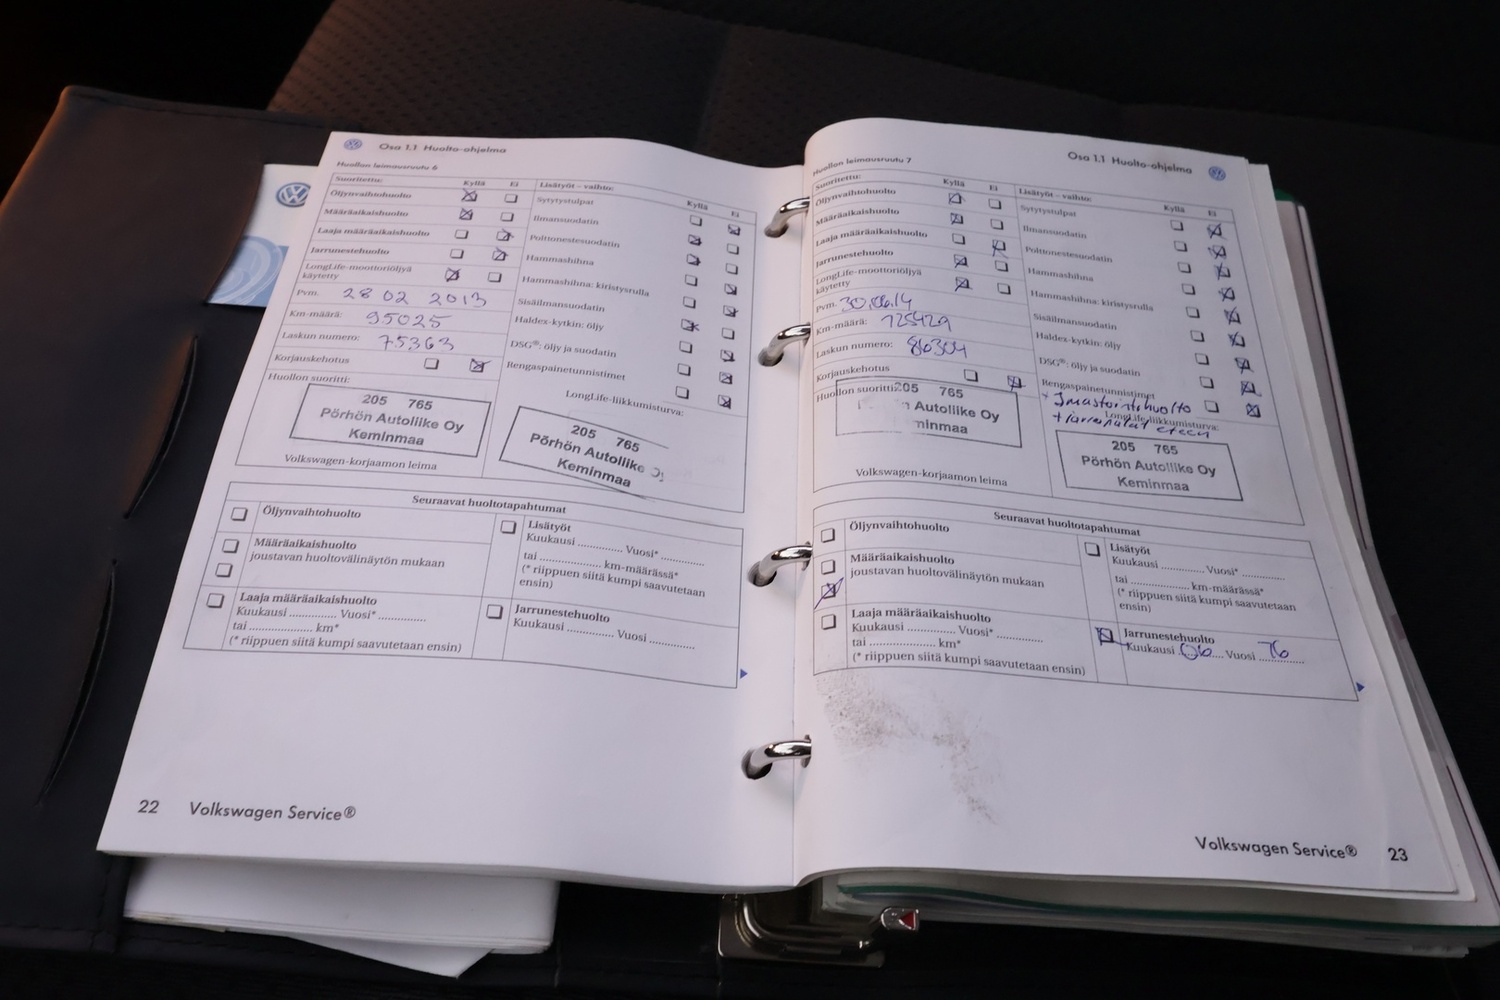 Osa 1.1 Huolto-ohjelma
Huollon leimausruutu 6
Suoritettu: Kyllä Ei
Öljynvaihtohuolto
Määräaikaishuolto
Laaja määräaikaishuolto
Jarrunestehuolto
LongLife-moottoriöljyä
käytetty
Pvm. 28 02 2013
Km-määrä: 95025
Laskun numero: 75363
Korjauskehotus
Huollon suoritti:
205 765
Pörhön Autoliike Oy
Keminmaa
Volkswagen-korjaamon leima
Lisätyöt – vaihto: Kyllä Ei
Sytytystulpat
Ilmansuodatin
Polttonestesuodatin
Hammashihna
Hammashihna: kiristysrulla
Sisäilmansuodatin
Haldex-kytkin: öljy
DSG®: öljy ja suodatin
Rengaspainetunnistimet
LongLife-liikkumisturva:
205 765
Pörhön Autoliike Oy
Keminmaa
Seuraavat huoltotapahtumat
Öljynvaihtohuolto
Määräaikaishuolto
joustavan huoltovälinäytön mukaan
Laaja määräaikaishuolto
Kuukausi .............. Vuosi* .............
tai .................. km*
(* riippuen siitä kumpi saavutetaan ensin)
Lisätyöt
Kuukausi ............. Vuosi* ............
tai ................. km-määrässä*
(* riippuen siitä kumpi saavutetaan
ensin)
Jarrunestehuolto
Kuukausi ............. Vuosi ............
22 Volkswagen Service®
Osa 1.1 Huolto-ohjelma
Huollon leimausruutu 7
Suoritettu: Kyllä Ei
Öljynvaihtohuolto
Määräaikaishuolto
Laaja määräaikaishuolto
Jarrunestehuolto
LongLife-moottoriöljyä
käytetty
Pvm. 30.06.14
Km-määrä: 125429
Laskun numero: 86304
Korjauskehotus
Huollon suoritti:
205 765
Autoliike Oy
Volkswagen-korjaamon leima
Lisätyöt – vaihto: Kyllä Ei
Sytytystulpat
Ilmansuodatin
Polttonestesuodatin
Hammashihna
Hammashihna: kiristysrulla
Sisäilmansuodatin
Haldex-kytkin: öljy
DSG®: öljy ja suodatin
Rengaspainetunnistimet
+ Ilmastointihuolto
LongLife-liikkumisturva:
+ jarrupalat eteen
205 765
Pörhön Autoliike Oy
Keminmaa
Seuraavat huoltotapahtumat
Öljynvaihtohuolto
Määräaikaishuolto
joustavan huoltovälinäytön mukaan
Laaja määräaikaishuolto
Kuukausi .............. Vuosi* .............
tai .................. km*
(* riippuen siitä kumpi saavutetaan ensin)
Lisätyöt
Kuukausi ............. Vuosi* ............
tai ................. km-määrässä*
(* riippuen siitä kumpi saavutetaan
ensin)
Jarrunestehuolto
Kuukausi 06 Vuosi 16
Volkswagen Service® 23